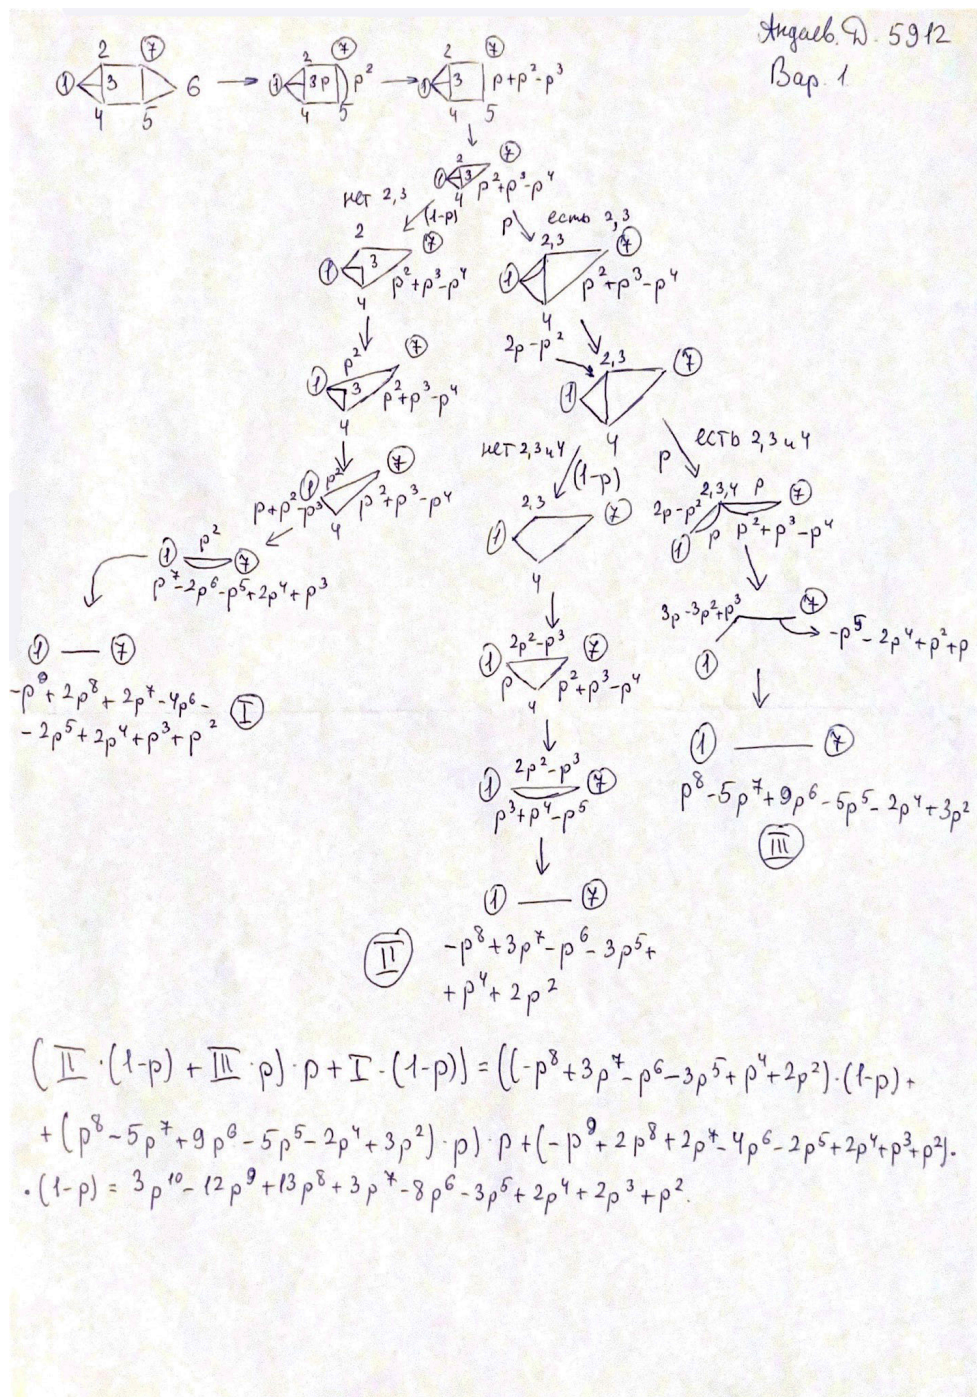 Андаев. Д. 5912
Вар. 1
2 ⑦
① 3 6
4 5
2 ⑦
① 3 p p²
4 5
2 ⑦
① 3 p+p²-p³
4 5
2 ⑦
① 3 p²+p³-p⁴
4
нет 2,3
(1-p)
p есть 2,3
2 ⑦
① 3 p²+p³-p⁴
4
2,3 ⑦
① p²+p³-p⁴
4
p² ⑦
① 3 p²+p³-p⁴
4
2p-p² 2,3 ⑦
①
4
нет 2,3 и 4
(1-p)
p есть 2,3 и 4
① p² ⑦
p+p²-p³ p²+p³-p⁴
4
2,3 ⑦
①
4
2,3,4 p ⑦
2p-p²
① p p²+p³-p⁴
p²
① ⑦
p⁷-2p⁶-p⁵+2p⁴+p³
3p-3p²+p³ ⑦
-p⁵-2p⁴+p²+p
①
① — ⑦
-p⁹+2p⁸+2p⁷-4p⁶-
-2p⁵+2p⁴+p³+p²
I
2p²-p³
① ⑦
p p²+p³-p⁴
4
① — ⑦
p⁸-5p⁷+9p⁶-5p⁵-2p⁴+3p²
III
2p²-p³
① ⑦
p³+p⁴-p⁵
① — ⑦
II -p⁸+3p⁷-p⁶-3p⁵+
+p⁴+2p²
(II·(1-p)+III·p)·p+I·(1-p))=((-p⁸+3p⁷-p⁶-3p⁵+p⁴+2p²)·(1-p)+
+(p⁸-5p⁷+9p⁶-5p⁵-2p⁴+3p²)·p)·p+(-p⁹+2p⁸+2p⁷-4p⁶-2p⁵+2p⁴+p³+p²)·
·(1-p)=3p¹⁰-12p⁹+13p⁸+3p⁷-8p⁶-3p⁵+2p⁴+2p³+p².